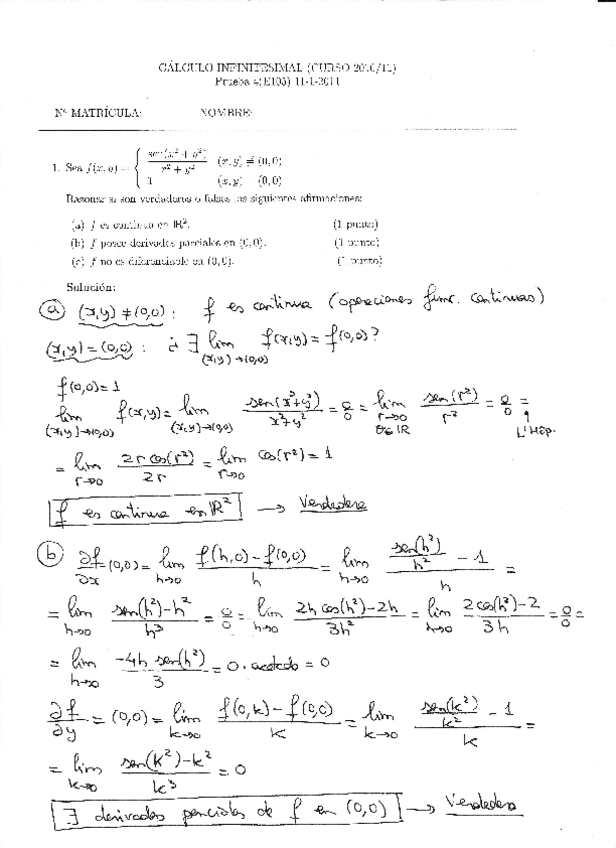 CÁLCULO INFINITESIMAL (CURSO 2010/11)
Prueba 4(E103) 11-1-2011
Nº MATRÍCULA: NOMBRE:
1. Sea f(x, y) = { sen(x² + y²) / x² + y² (x, y) ≠ (0, 0)
1 (x, y) = (0, 0)
Razonar si son verdaderas o falsas las siguientes afirmaciones:
(a) f es continua en ℝ². (1 punto)
(b) f posee derivadas parciales en (0, 0). (1 punto)
(c) f no es diferenciable en (0, 0). (1 punto)
Solución:
a (x,y) ≠ (0,0) : f es continua (operaciones func. continuas)
(x,y) = (0,0) : ¿ ∃ lim (x,y)→(0,0) f(x,y) = f(0,0) ?
f(0,0) = 1
lim (x,y)→(0,0) f(x,y) = lim (x,y)→(0,0) sen(x²+y²) / x²+y² = 0/0 = lim r→0 θ∈ℝ sen(r²) / r² = 0/0 = L'Hôp.
= lim r→0 2r cos(r²) / 2r = lim r→0 cos(r²) = 1
f es continua en ℝ² → Verdadera
b ∂f/∂x (0,0) = lim h→0 f(h,0) - f(0,0) / h = lim h→0 sen(h²)/h² - 1 / h =
= lim h→0 sen(h²) - h² / h³ = 0/0 = lim h→0 2h cos(h²) - 2h / 3h² = lim h→0 2 cos(h²) - 2 / 3h = 0/0 =
= lim h→0 -4h sen(h²) / 3 = 0 · acotado = 0
∂f/∂y = (0,0) = lim k→0 f(0,k) - f(0,0) / k = lim k→0 sen(k²)/k² - 1 / k =
= lim k→0 sen(k²) - k² / k³ = 0
∃ derivadas parciales de f en (0,0) → Verdadera